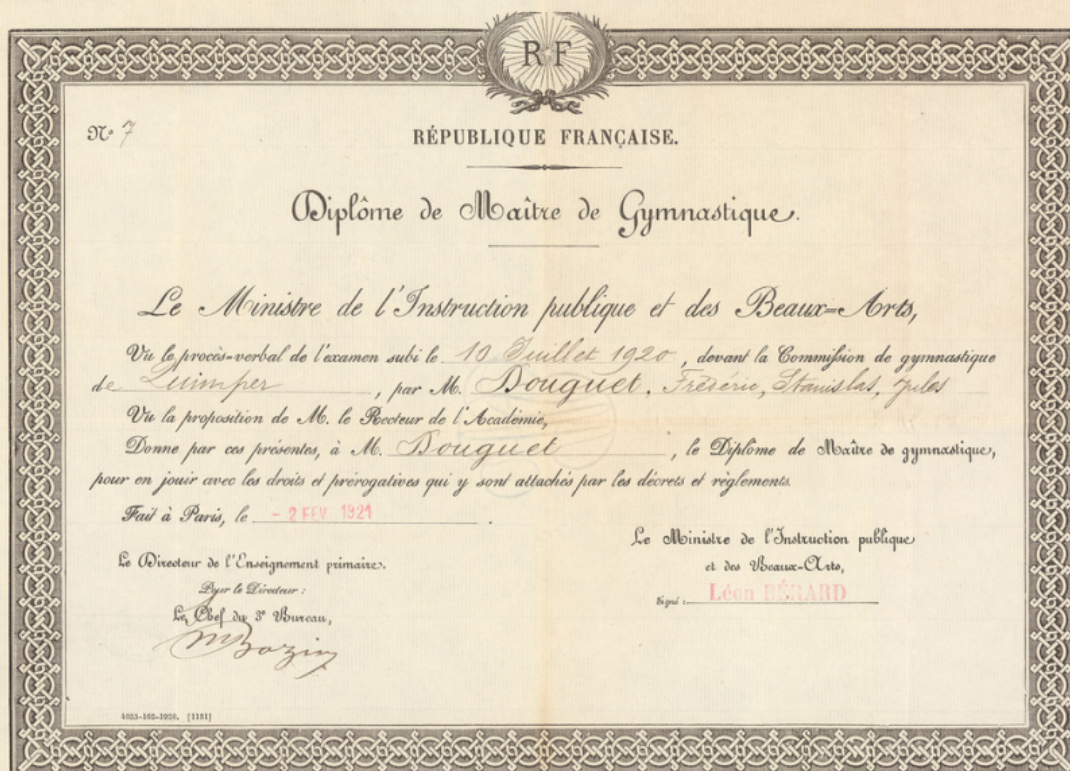 RF
Nº 7
RÉPUBLIQUE FRANÇAISE.
Diplôme de Maître de Gymnastique.
Le Ministre de l'Instruction publique et des Beaux=Arts,
Vu le procès-verbal de l'examen subi le 10 Juillet 1920, devant la Commission de gymnastique
de Quimper, par M. Douguet, Frédéric, Stanislas, Jules
Vu la proposition de M. le Recteur de l'Académie,
Donne par ces présentes, à M. Douguet, le Diplôme de Maître de gymnastique,
pour en jouir avec les droits et prérogatives qui y sont attachés par les décrets et règlements.
Fait à Paris, le - 2 FEV 1921.
Le Directeur de l'Enseignement primaire.
Pour le Directeur :
Le Chef du 3e Bureau,
Le Ministre de l'Instruction publique
et des Beaux-Arts,
Signé : Léon BÉRARD
4033-162-1920. [1181]